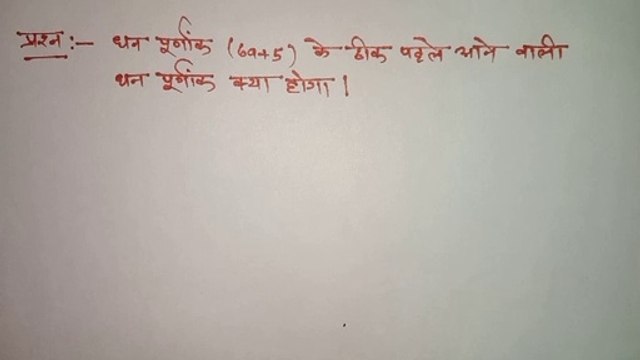 प्रश्न :- धन पूर्णांक (6a+5) के ठीक पहले आने वाली
धन पूर्णांक क्या होगा।